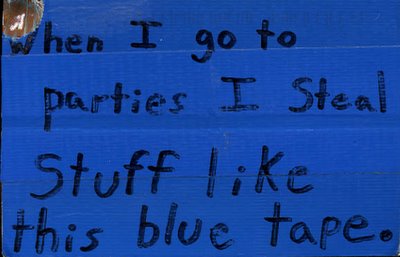 When I go to
parties I Steal
Stuff like
this blue tape.